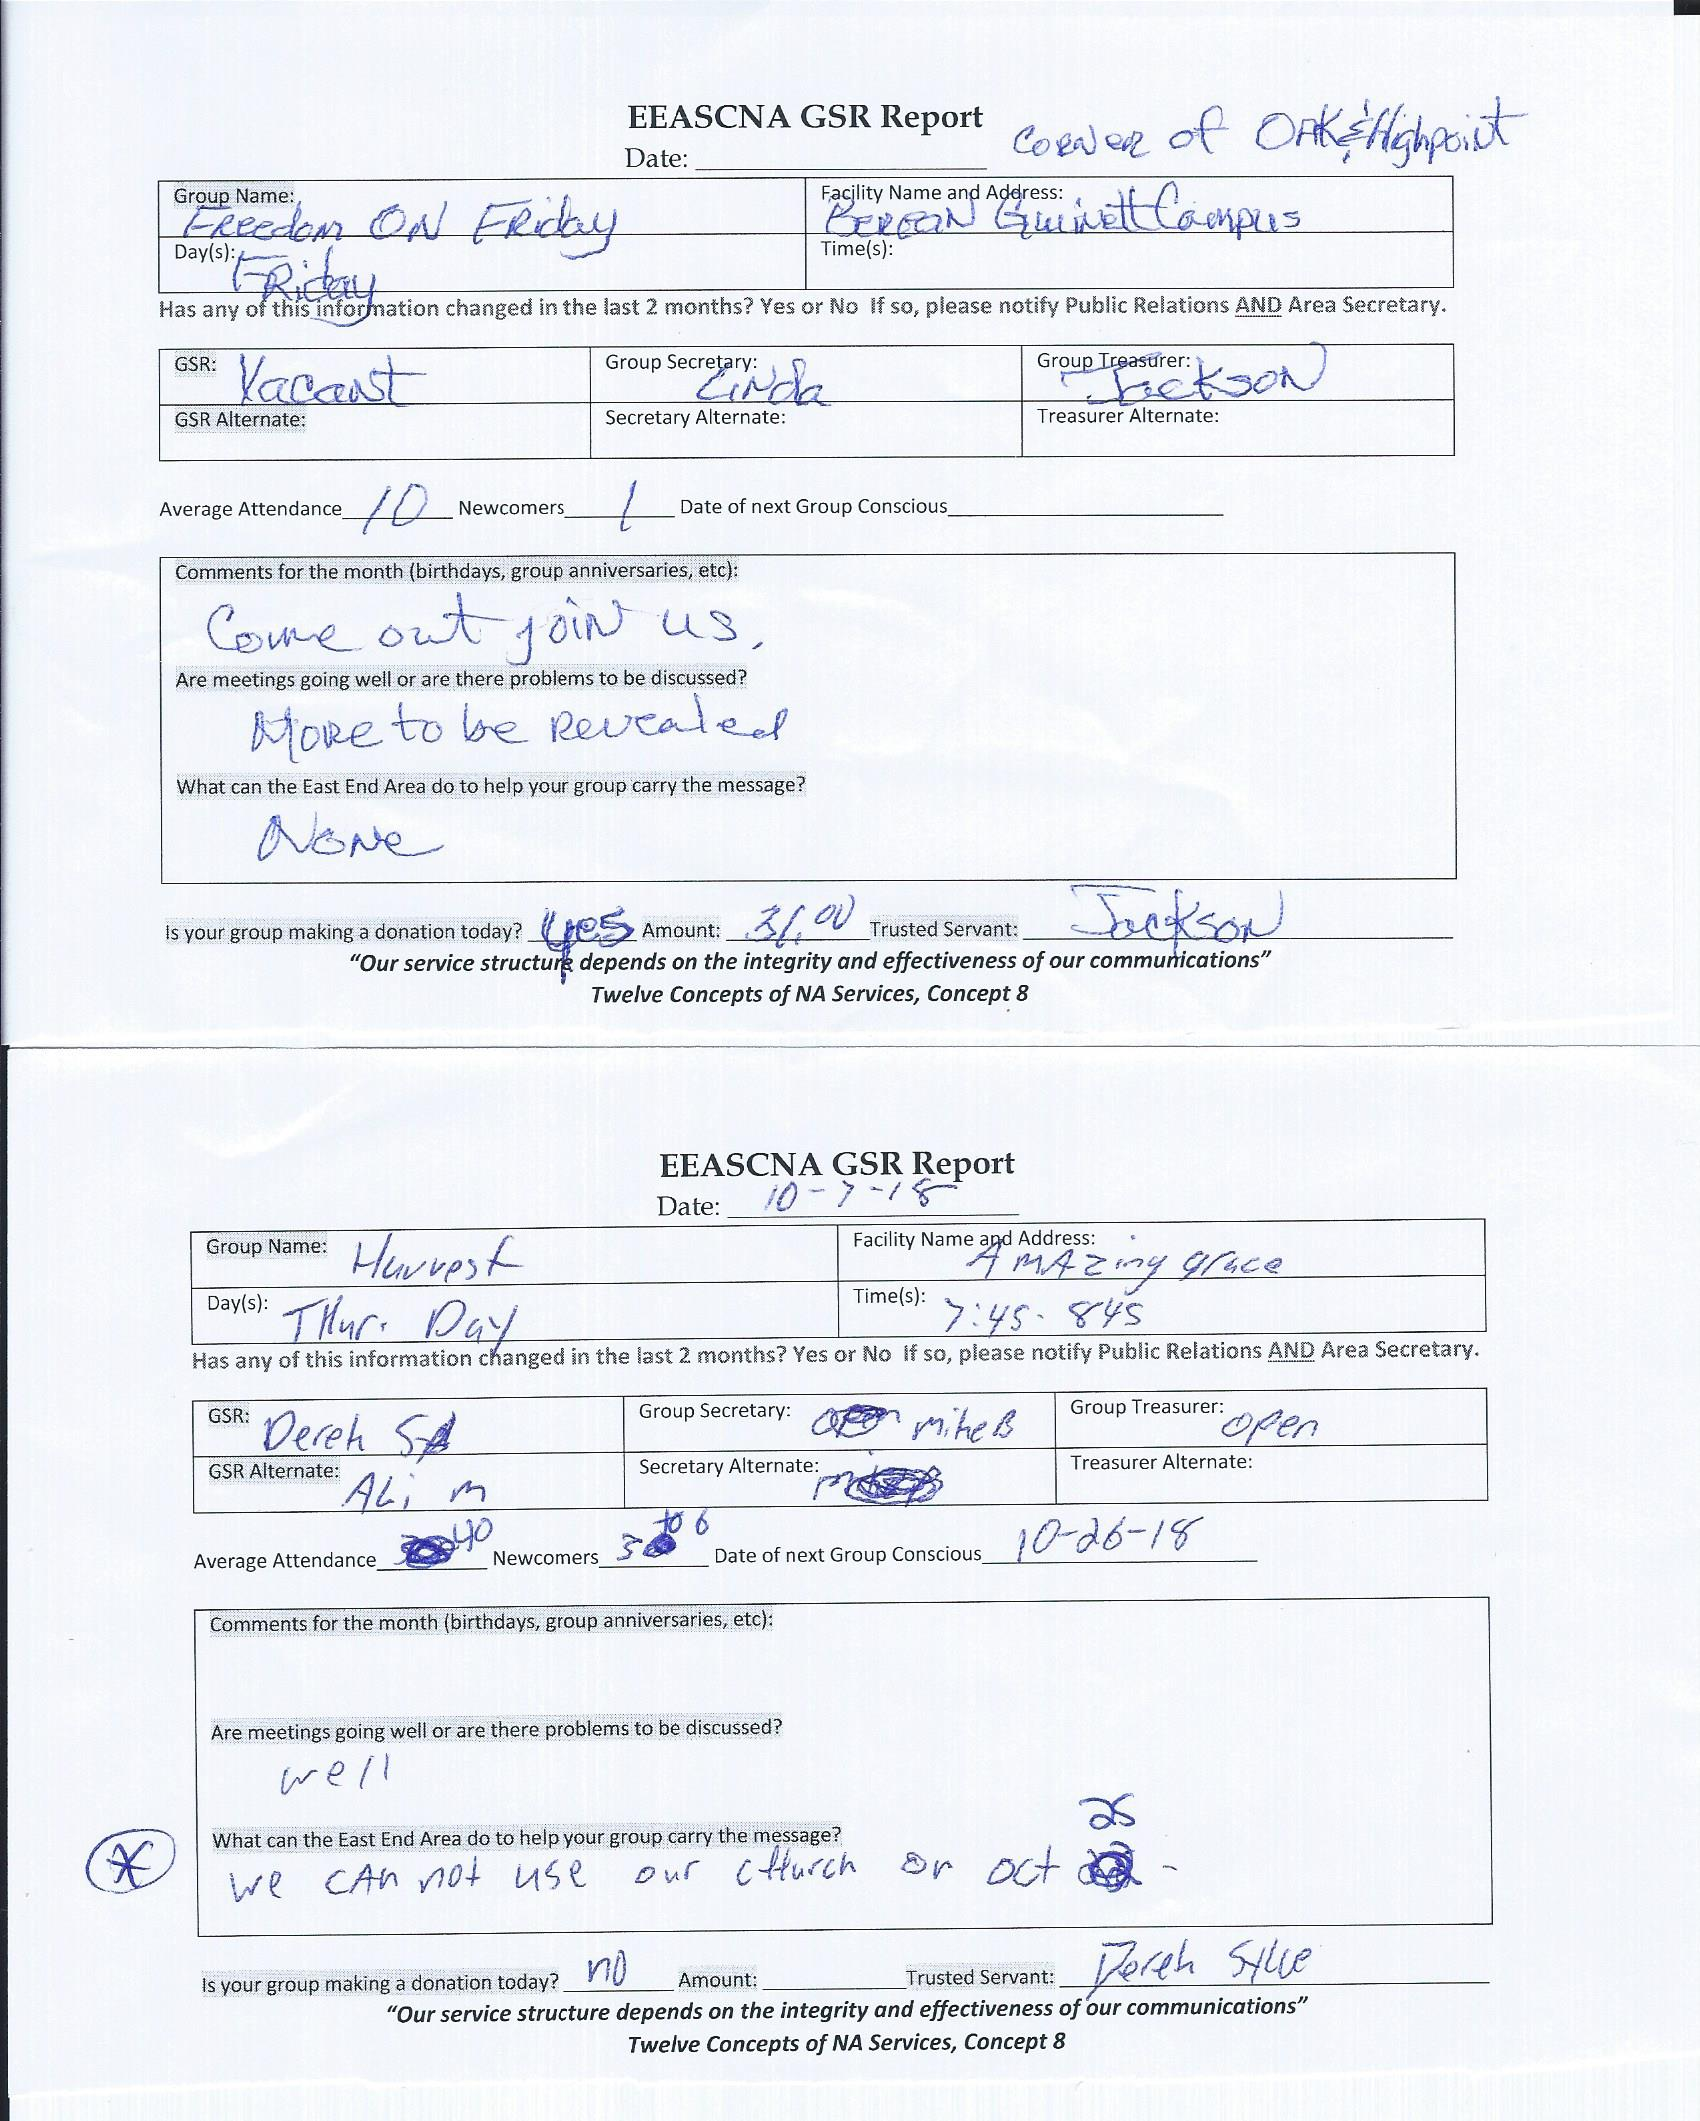 EEASCNA GSR Report
Corner of Oak & Highpoint
Date:
Group Name: Freedom ON Friday
Facility Name and Address: Berean Gwinett Campus
Day(s): Friday
Time(s):
Has any of this information changed in the last 2 months? Yes or No If so, please notify Public Relations AND Area Secretary.
GSR: Vacant
Group Secretary: Linda
Group Treasurer: Jackson
GSR Alternate:
Secretary Alternate:
Treasurer Alternate:
Average Attendance 10 Newcomers 1 Date of next Group Conscious
Comments for the month (birthdays, group anniversaries, etc):
Come out join us,
Are meetings going well or are there problems to be discussed?
More to be Revealed
What can the East End Area do to help your group carry the message?
None
Is your group making a donation today? yes Amount: 31.00 Trusted Servant: Jackson
"Our service structure depends on the integrity and effectiveness of our communications"
Twelve Concepts of NA Services, Concept 8
EEASCNA GSR Report
Date: 10-7-18
Group Name: Harvest
Facility Name and Address: AMAzing grace
Day(s): THur. Day
Time(s): 7:45-845
Has any of this information changed in the last 2 months? Yes or No If so, please notify Public Relations AND Area Secretary.
GSR: Derek S
Group Secretary: Mike B
Group Treasurer: open
GSR Alternate: ALi M
Secretary Alternate:
Treasurer Alternate:
Average Attendance 40 Newcomers 5 to 6 Date of next Group Conscious 10-26-18
Comments for the month (birthdays, group anniversaries, etc):
Are meetings going well or are there problems to be discussed?
well
25
What can the East End Area do to help your group carry the message?
We cAn not use our cHurch or oct -
Is your group making a donation today? no Amount: Trusted Servant: Derek
"Our service structure depends on the integrity and effectiveness of our communications"
Twelve Concepts of NA Services, Concept 8